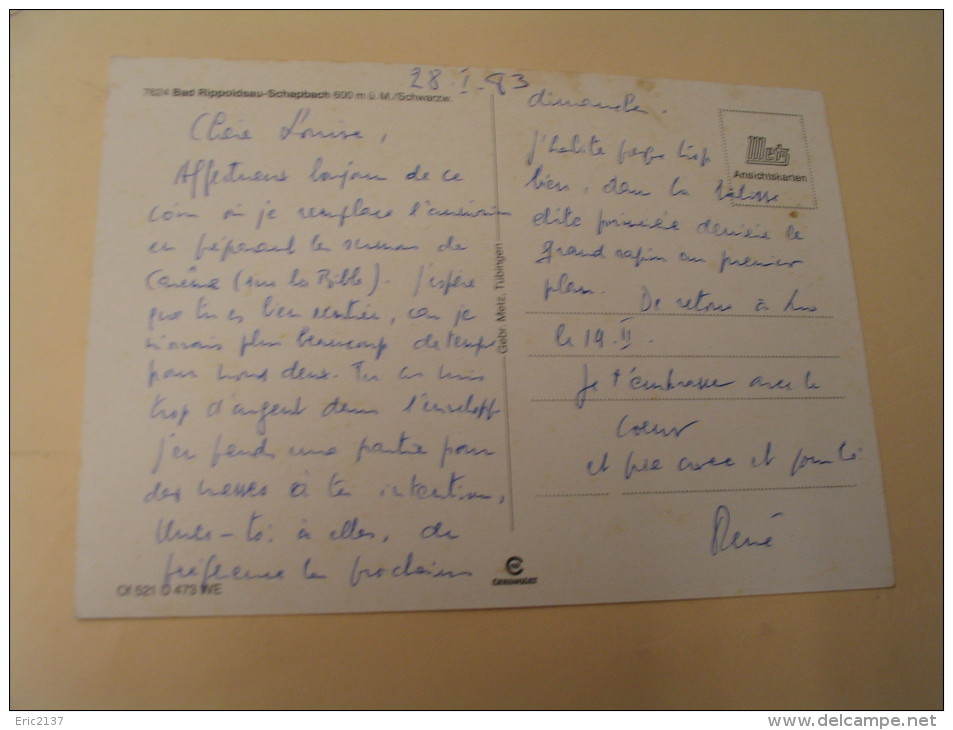 28.I.83
7624 Bad Rippoldsau-Schapbach 600 m ü. M./Schwarzw.
Chère Louise,
Affectueux bonjour de ce
coin où je remplace l'aumônier
en préparant les sermons de
Carême (sur la Bible). J'espère
que tu es bien rentrée, car je
n'avais plus beaucoup de temps
pour nous deux. Tu as mis
trop d'argent dans l'enveloppe
j'en prends une partie pour
des messes à ton intention,
Unis-toi à elles, de
préférence les prochains
Of 521 D 473 WE
Gebr. Metz, Tübingen
CHROMOLUX
Metz
Ansichtskarten
dimanche.
J'habite pas trop
bien, dans la bâtisse
dite derrière le
grand sapin au premier
plan.
De retour à
le 19.II.
Je t'embrasse avec le
coeur
et prie avec et pour toi
René
Eric2137
www.delcampe.net